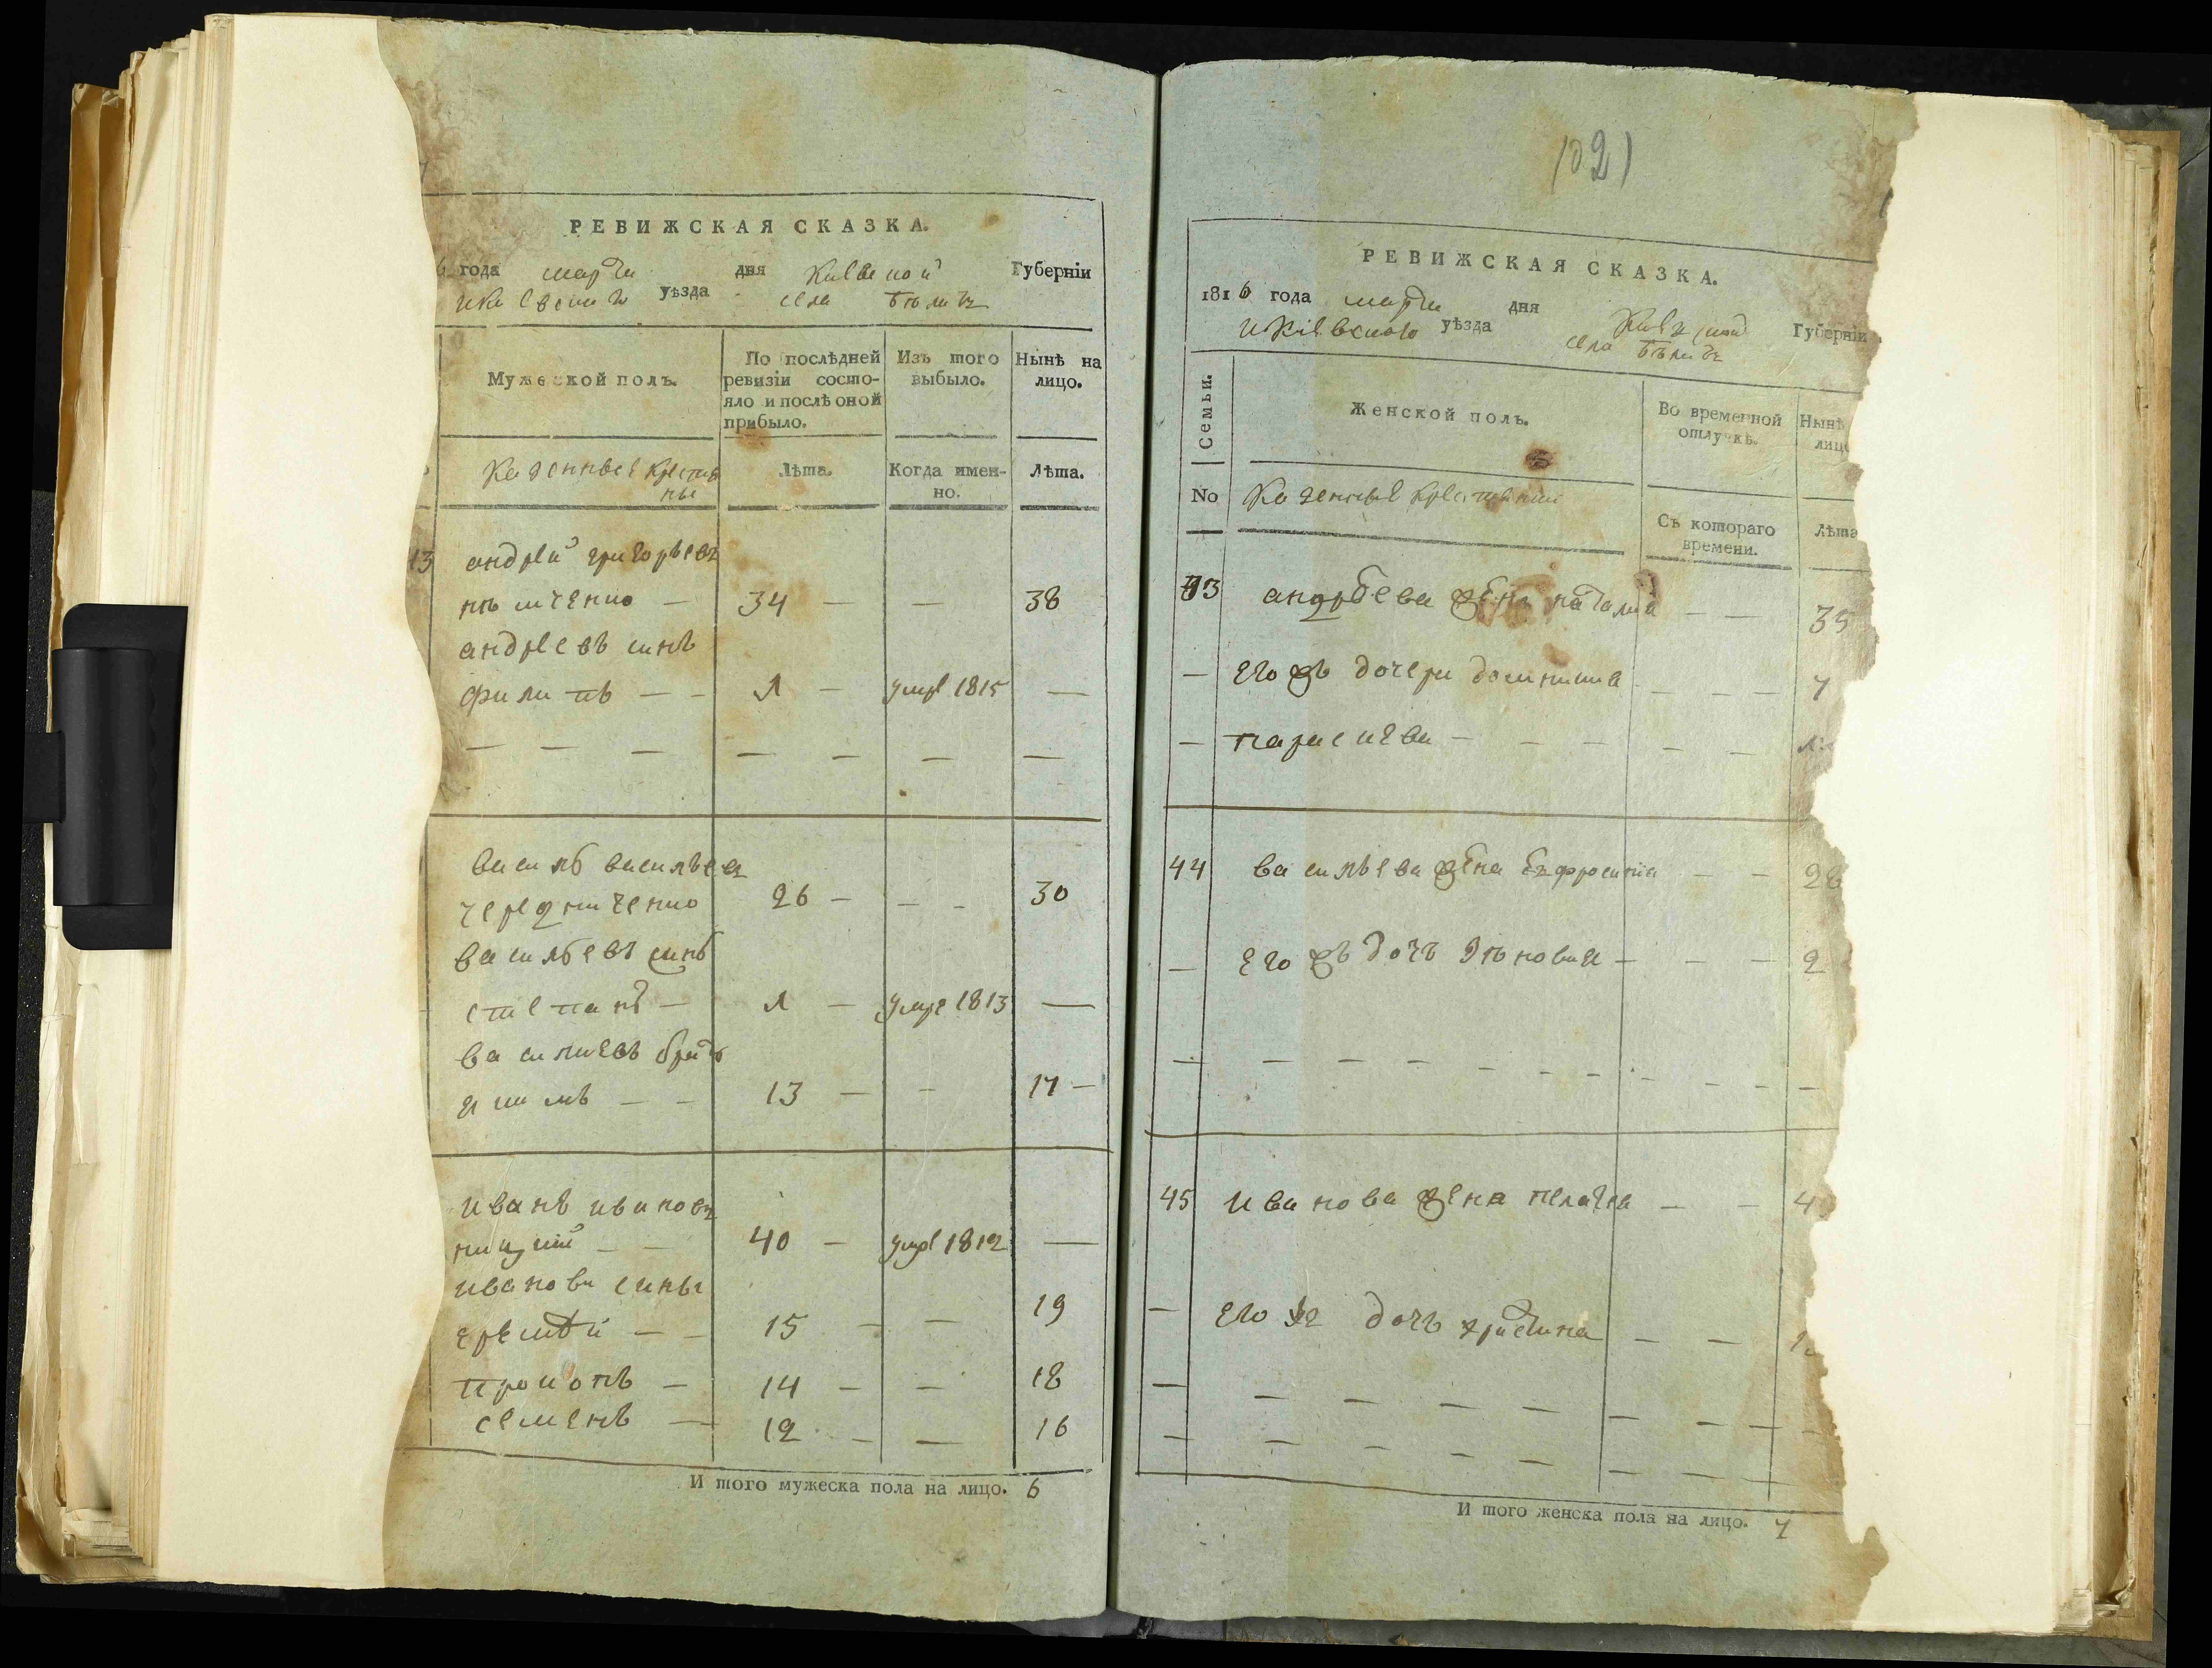 РЕВИЖСКАЯ СКАЗКА.
6 года марта дня Киевской Губерніи
Киевскаго уѣзда села
Мужеской полъ.
По послѣдней ревизіи состо-
яло и послѣ оной прибыло.
Изъ того выбыло.
Нынѣ на лицо.
Казенные крестья
ны
Лѣта.
Когда имен-
но.
Лѣта.
13 андрей григорьевъ
34 — — 38
андреевъ синъ
филипъ — — Л — умре 1815 —
— — — — — — —
василь васильевъ
26 — — — 30
васильевъ синъ
степанъ — Л — умре 1813 —
василиевъ братъ
якимъ — — 13 — — 17 —
иванъ ивановъ
40 — умре 1812 —
иванови сины
еремѣй — — 15 — — 19
прокопъ — 14 — — 18
семенъ — 12 — — 16
И того мужеска пола на лицо. 6
102)
РЕВИЖСКАЯ СКАЗКА.
1816 года марта дня Губерніи
Киевскаго уѣзда села
Семьи.
Женской полъ.
Во временной отлучкѣ.
Нынѣ
лиц
No
Казенные крестьянки
Съ котораго времени.
Лѣта
13 андрѣева жена наталия — — 35
— его жъ дочери домникия — — — 7
— параскева — — — — —
44 васильева жена Евфросиния — — 28
— его жъ дочь зѣновия — — — 2
— — — — — — — — — — —
45 иванова жена пелагея — — 4
— его же дочь христина — —
— — — — — — — —
— — — — — — — —
И того женска пола на лицо. 7